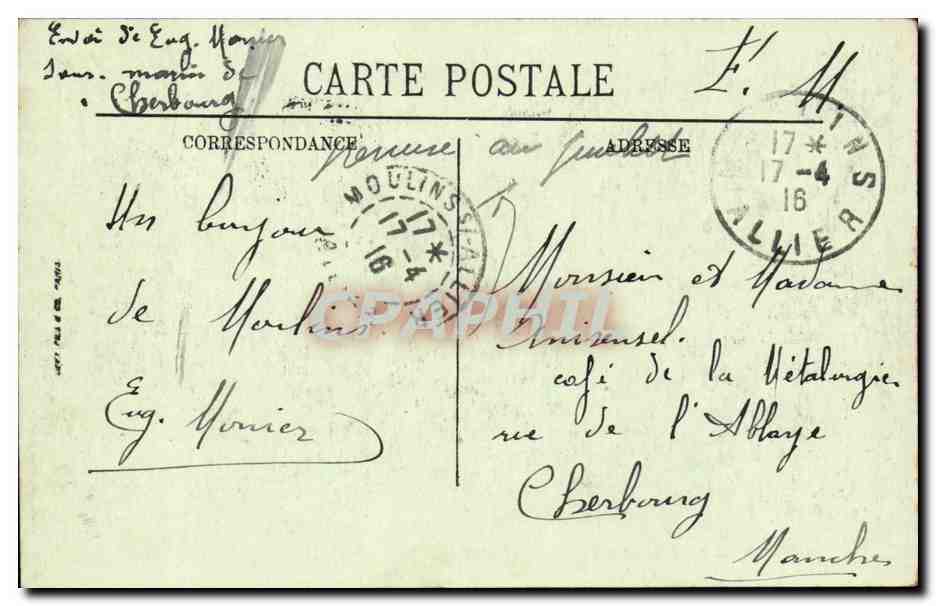 Envoi de Eug. Monier
sous-marin de
Cherbourg
F. M.
CARTE POSTALE
CORRESPONDANCE
ADRESSE
au guichet
MOULINS-S-ALLIER
17 *
17 -4
16
INS
17 *
17 -4
16
ALLIER
Un bonjour
de Moulins.
Eug. Monier
Monsieur et Madame
café de la Métalurgie
rue de l'Abbaye
Cherbourg
Manche
CPAPHIL